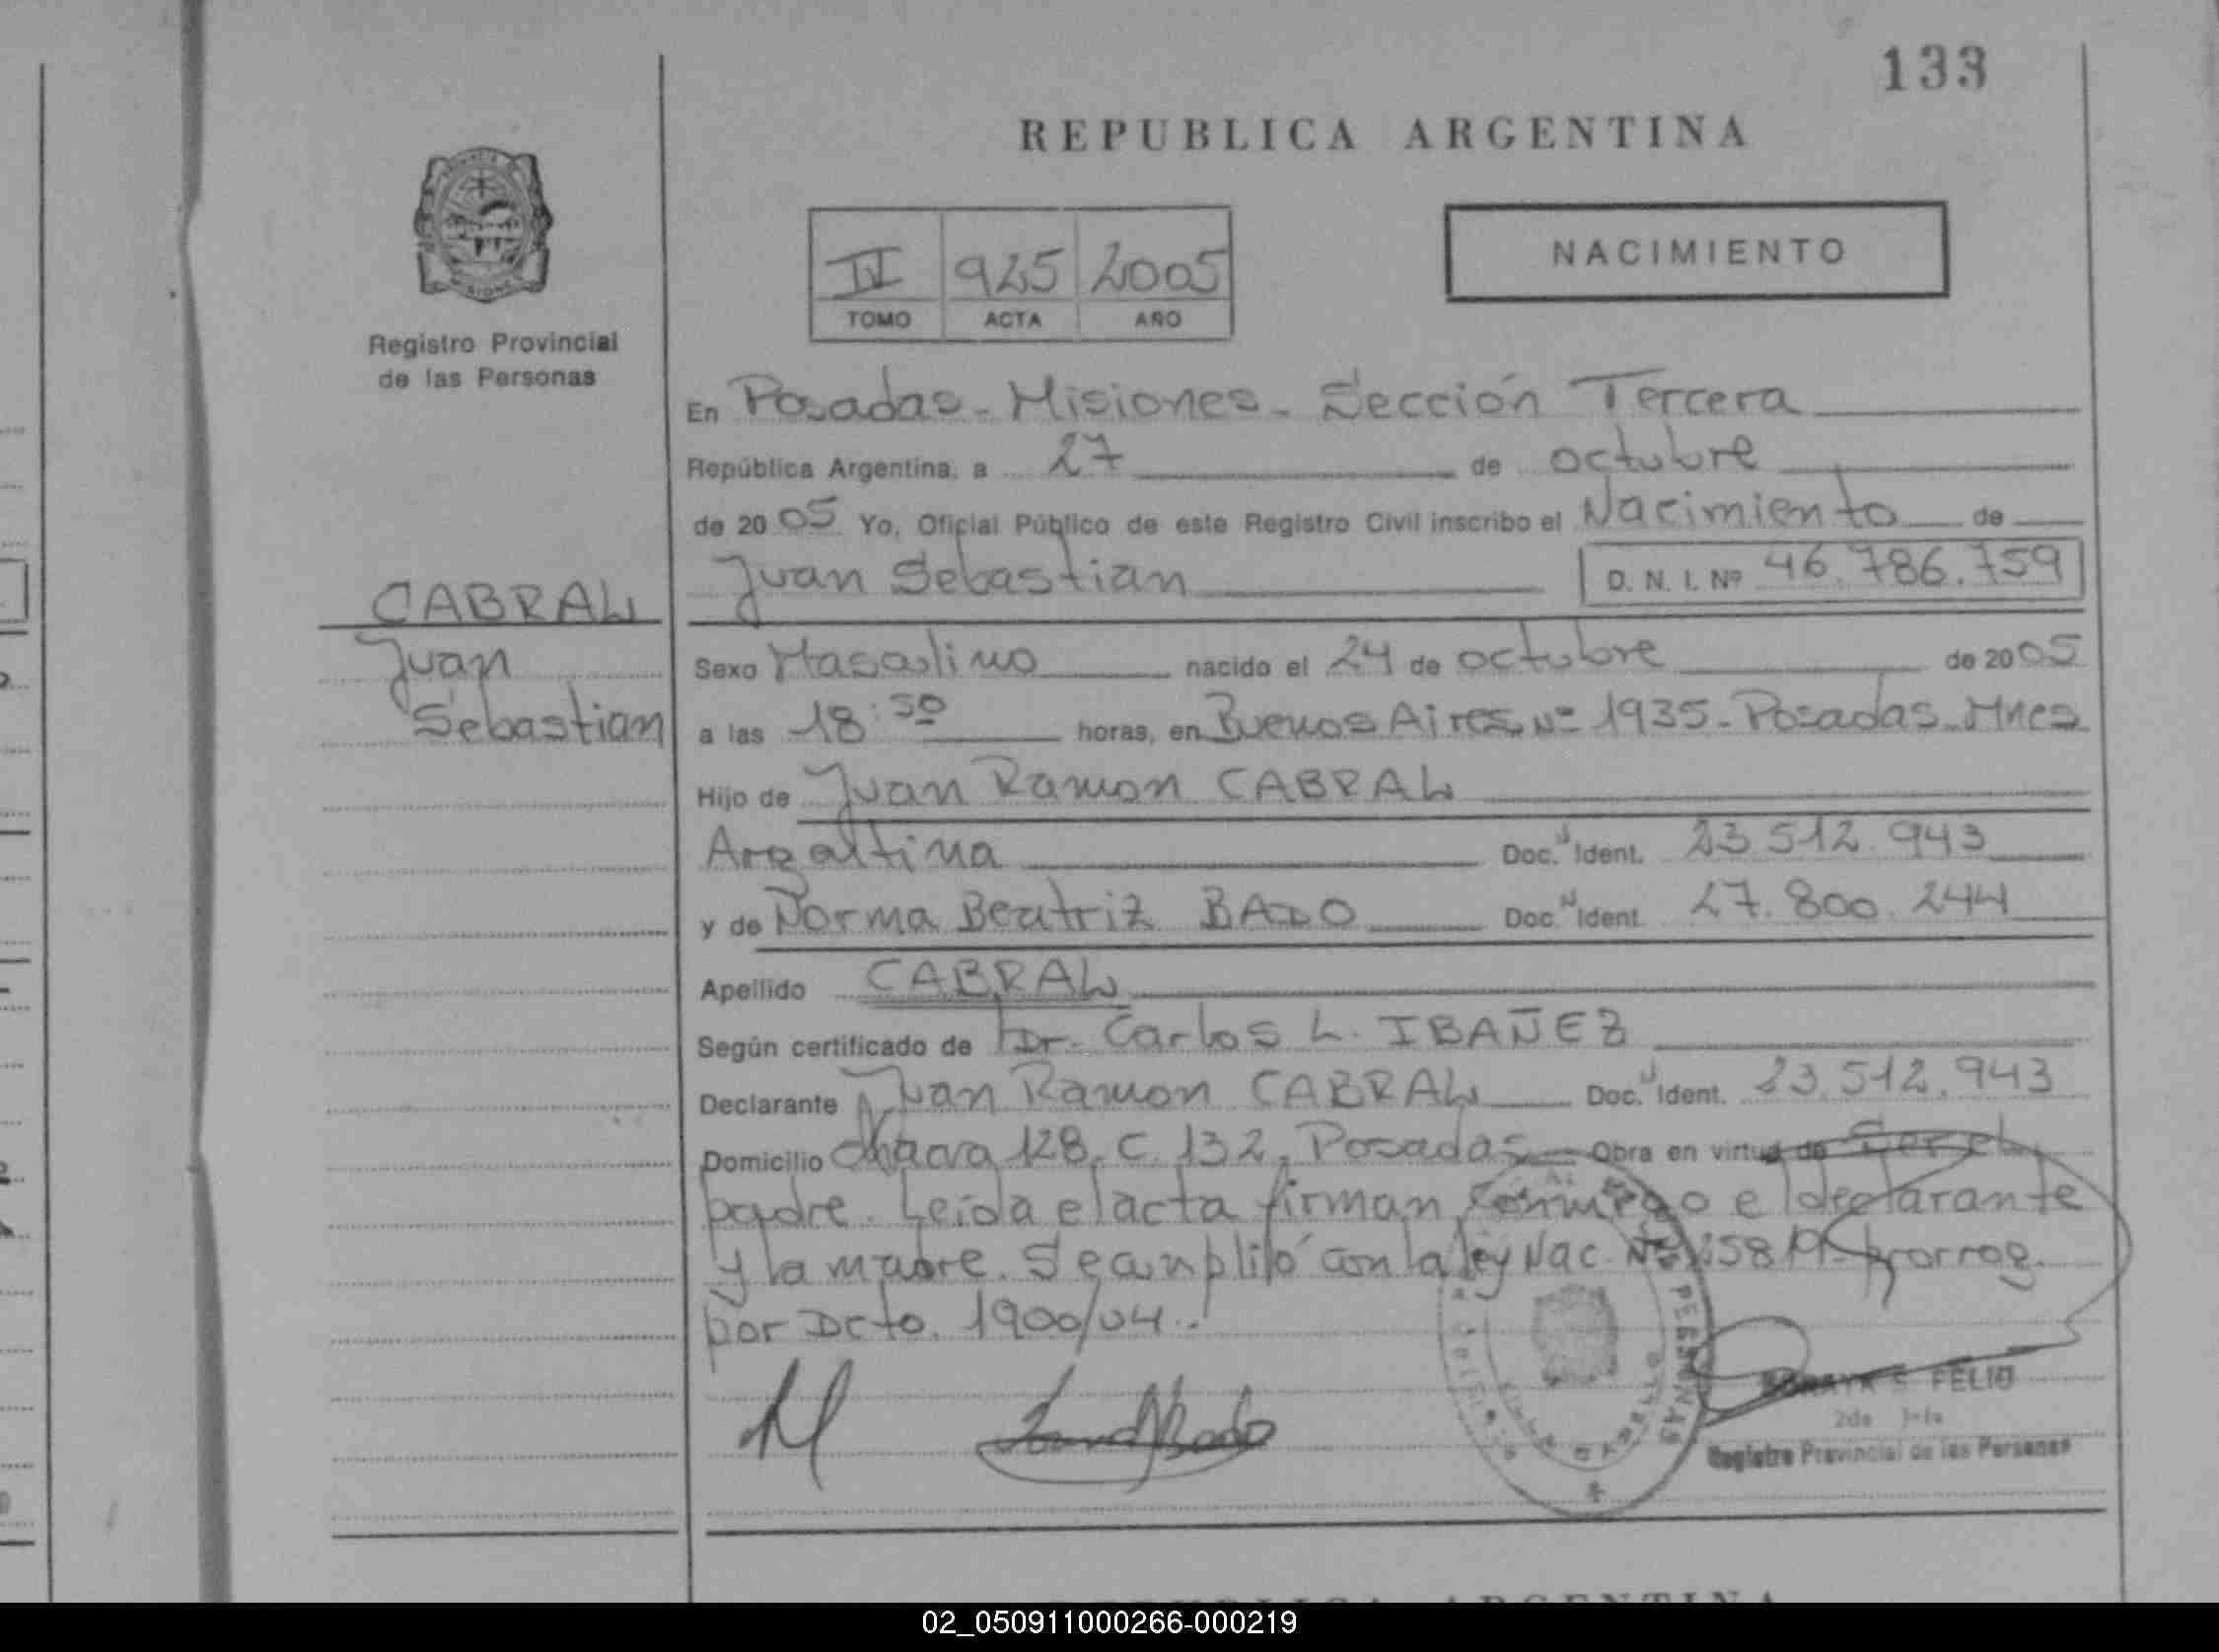 133
REPUBLICA ARGENTINA
Registro Provincial
de las Personas
IV 925 2005
TOMO ACTA AÑO
NACIMIENTO
En Posadas - Misiones - Sección Tercera
República Argentina, a 27 de octubre
de 2005 Yo, Oficial Público de este Registro Civil inscribo el Nacimiento de
Juan Sebastian D. N. I. Nº 46.786.759
CABRAL
Juan
Sebastian
Sexo Masculino nacido el 24 de octubre de 2005
a las 18:50 horas, en Buenos Aires Nº 1935 - Posadas - Mnes
Hijo de Juan Ramon CABRAL
Argentina Doc. Ident. 23.512.943
y de Norma Beatriz BADO Doc. Ident. 27.800.244
Apellido CABRAL
Según certificado de Dr. Carlos L. IBAÑEZ
Declarante Juan Ramon CABRAL Doc. Ident. 23.512.943
Domicilio Chacra 128, C. 132, Posadas Obra en virtud de Ser el
padre. Leida el acta firman conmigo el declarante
y la madre. Se cumplió con la ley Nac. Nº 25819 - prorrog.
por Dcto. 1900/04.
FELIU
Registro Provincial de las Personas
02_050911000266-000219